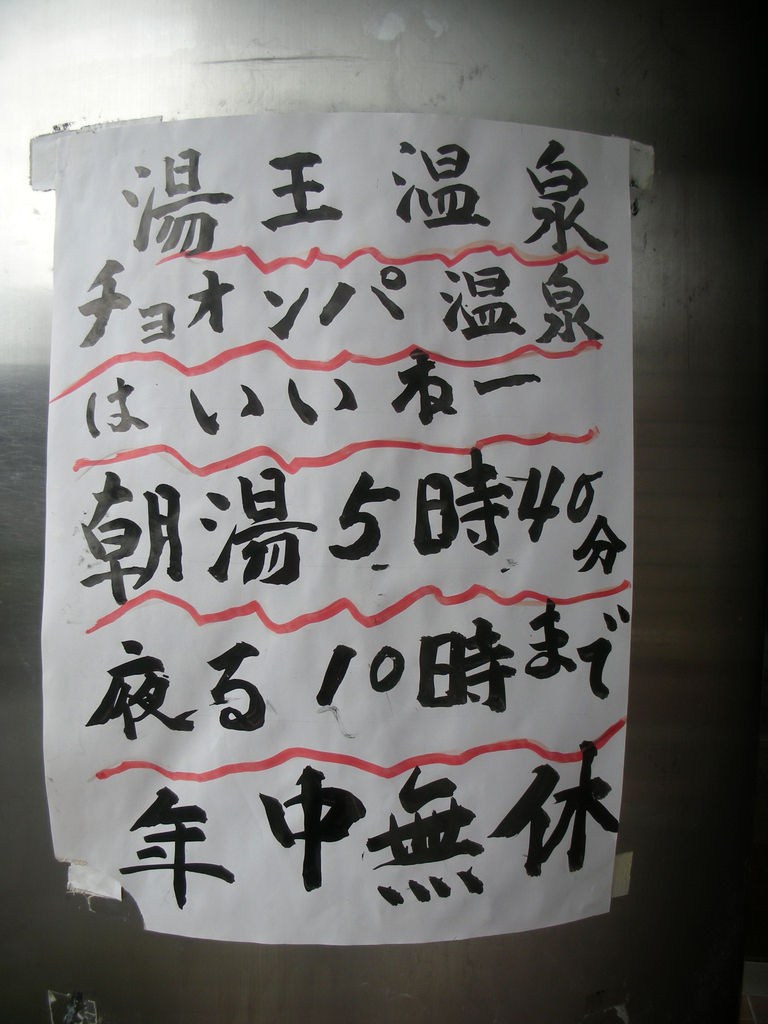 湯王温泉
チョオンパ温泉
はいいねー
朝湯5時40分
夜る10時まで
年中無休